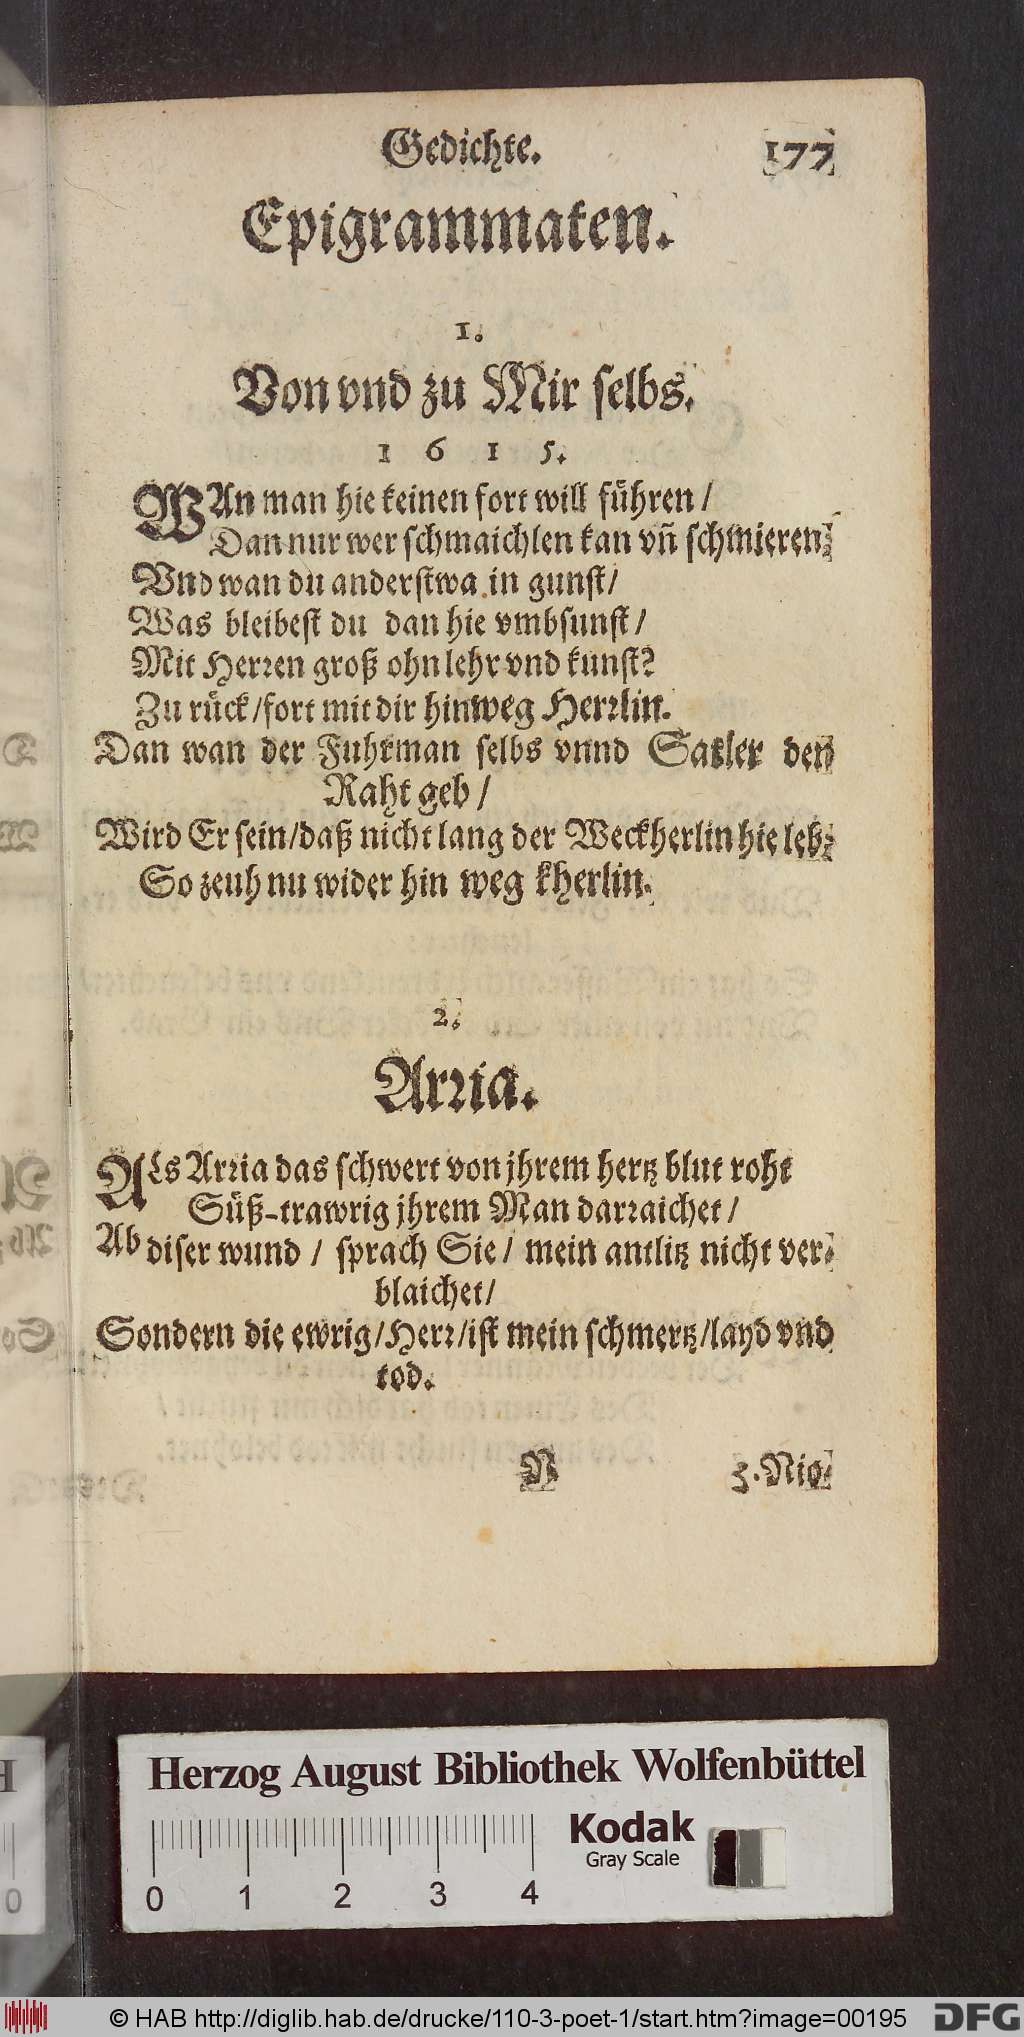 Gedichte. 177
Epigrammaten.
1.
Von vnd zu Mir ſelbs.
1 6 1 5.
WAn man hie keinen fort will führen /
Dan nur wer ſchmaichlen kan vñ ſchmieren;
Vnd wan du anderſtwa in gunſt /
Was bleibeſt du dan hie vmbſunſt /
Mit Herꝛen groß ohn lehr vnd kunſt?
Zu rück / fort mit dir hinweg Herꝛlin.
Dan wan der Fuhrman ſelbs vnnd Satler den
Raht geb /
Wird Er ſein / daß nicht lang der Weckherlin hie leb:
So zeuh nu wider hin weg kherlin.
2.
Arꝛia.
ALs Arꝛia das ſchwert von jhrem hertz blut roht
Süß-trawrig jhrem Man darꝛaichet /
Ab diſer wund / ſprach Sie / mein antlitz nicht ver-
blaichet /
Sondern die ewrig / Herꝛ / iſt mein ſchmertz / layd vnd
tod.
N 3. Nio-
Herzog August Bibliothek Wolfenbüttel
Kodak
Gray Scale
0 1 2 3 4
© HAB http://diglib.hab.de/drucke/110-3-poet-1/start.htm?image=00195 DFG